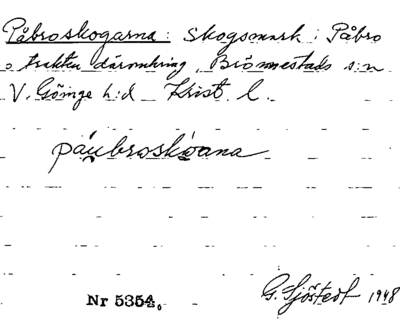 Påbroskogarna: Skogsmark i Påbro
o trakten däromkring, Brönnestads s:n
V. Göinge h:d Krist. l.
påubroskoana
Nr 5354.
G. Sjöstedt 1948